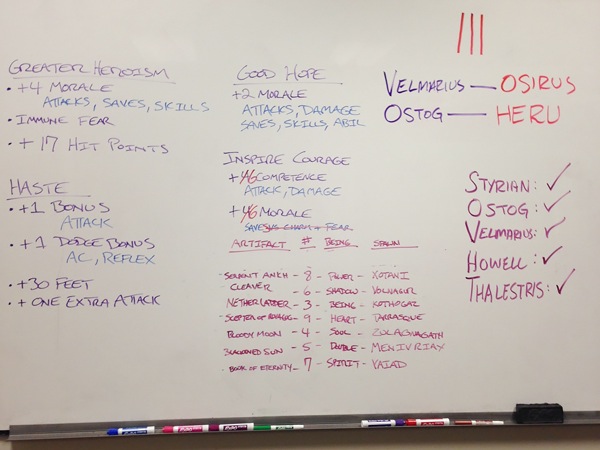 GREATER HEROISM
• +4 MORALE
ATTACKS, SAVES, SKILLS
• IMMUNE FEAR
• + 17 HIT POINTS
HASTE
• +1 BONUS
ATTACK
• +1 DODGE BONUS
AC, REFLEX
• +30 FEET
• + ONE EXTRA ATTACK
GOOD HOPE
• +2 MORALE
ATTACKS, DAMAGE
SAVES, SKILLS, ABIL
INSPIRE COURAGE
• +6 COMPETENCE
ATTACK, DAMAGE
• +6 MORALE
SAVES VS CHARM + FEAR
ARTIFACT # BEING SPAWN
SERPENT ANKH – 8 – POWER – XOTANI
CLEAVER – 6 – SHADOW – VOLNAGUR
NETHER LADDER – 3 – BEING – KOTHOGAZ
SCEPTER OF – 9 – HEART – TARRASQUE
BLOODY MOON – 4 – SOUL – ZULAGHAGATH
BLACKENED SUN – 5 – DOUBLE – MENIVRIAX
BOOK OF ETERNITY – 7 – SPIRIT – YAIAD
III
VELMARIUS — OSIRUS
OSTOG — HERU
STYRIAN: ✓
OSTOG: ✓
VELMARIUS: ✓
HOWELL: ✓
THALESTRIS: ✓